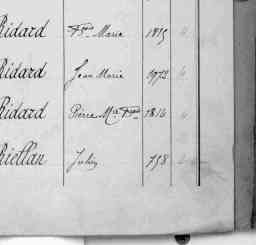 Ridard Fçois Marie 1815
Ridard Jean Marie 1772
Ridard Pierre Mie 1814
Riellan Julien 758